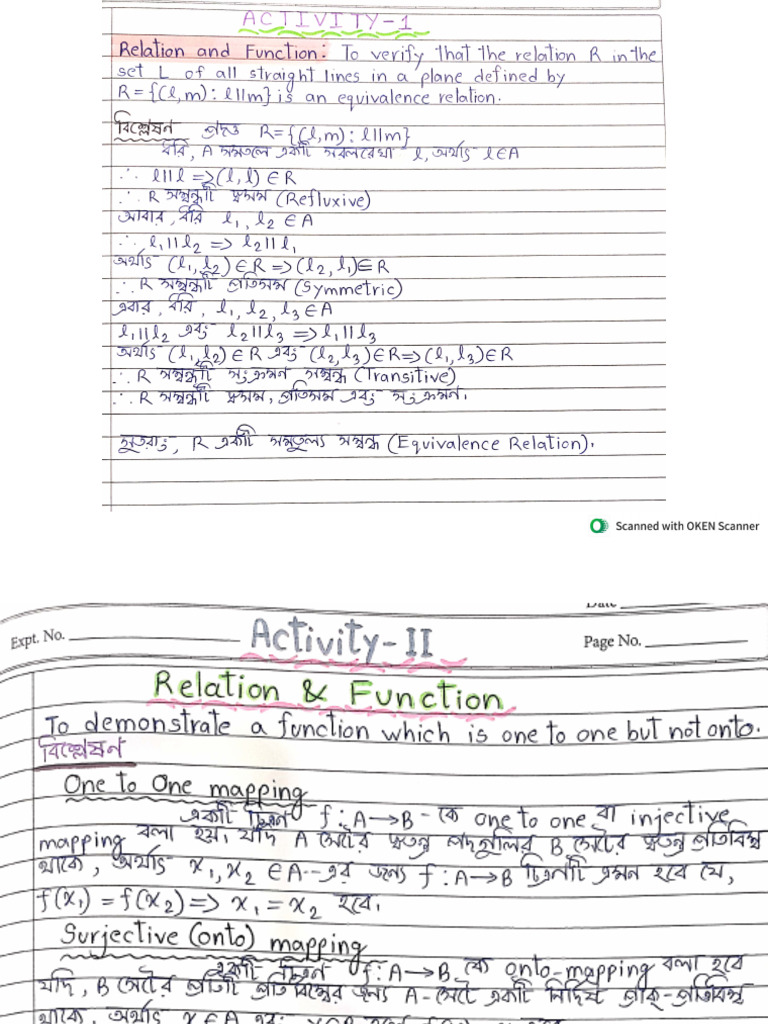 ACTIVITY-1
Relation and Function: To verify that the relation R in the
set L of all straight lines in a plane defined by
R={(l,m): l||m} is an equivalence relation.
বিশ্লেষন প্রদত্ত R={(l,m): l||m}
ধরি, A সমতলে একটি সরলরেখা l, অর্থাৎ l∈A
∴ l||l => (l, l) ∈ R
∴ R সম্বন্ধটি স্বসম (Refluxive)
আবার, ধরি l₁, l₂ ∈ A
∴ l₁||l₂ => l₂||l₁
অর্থাৎ (l₁, l₂) ∈ R => (l₂, l₁) ∈ R
∴ R সম্বন্ধটি প্রতিসম (Symmetric)
এবার, ধরি, l₁, l₂, l₃ ∈ A
l₁||l₂ এবং l₂||l₃ => l₁||l₃
অর্থাৎ (l₁, l₂) ∈ R এবং (l₂, l₃) ∈ R => (l₁, l₃) ∈ R
∴ R সম্বন্ধটি সংক্রমন সম্বন্ধ (Transitive)
∴ R সম্বন্ধটি স্বসম, প্রতিসম এবং সংক্রমন।
সুতরাং, R একটি সমতুল্য সম্বন্ধ (Equivalence Relation).
Scanned with OKEN Scanner
Expt. No.
Activity-II
Page No.
Relation & Function
To demonstrate a function which is one to one but not onto.
বিশ্লেষন
One to One mapping
একটি চিত্রন f: A→B -কে one to one বা injective
mapping বলা হয়, যদি A সেটের স্বতন্ত্র পদগুলির B সেটের স্বতন্ত্র প্রতিবিম্ব
থাকে, অর্থাৎ x₁, x₂ ∈ A--এর জন্য f: A→B চিত্রনটি এমন হবে যে,
f(x₁) = f(x₂) => x₁ = x₂ হবে।
Surjective (onto) mapping
একটি চিত্রন f: A→B কে onto-mapping বলা হবে
যদি, B সেটের প্রতিটি প্রতিবিম্বের জন্য A-সেটে একটি নির্দিষ্ট প্রাক্-প্রতিবিম্ব
থাকে, অর্থাৎ